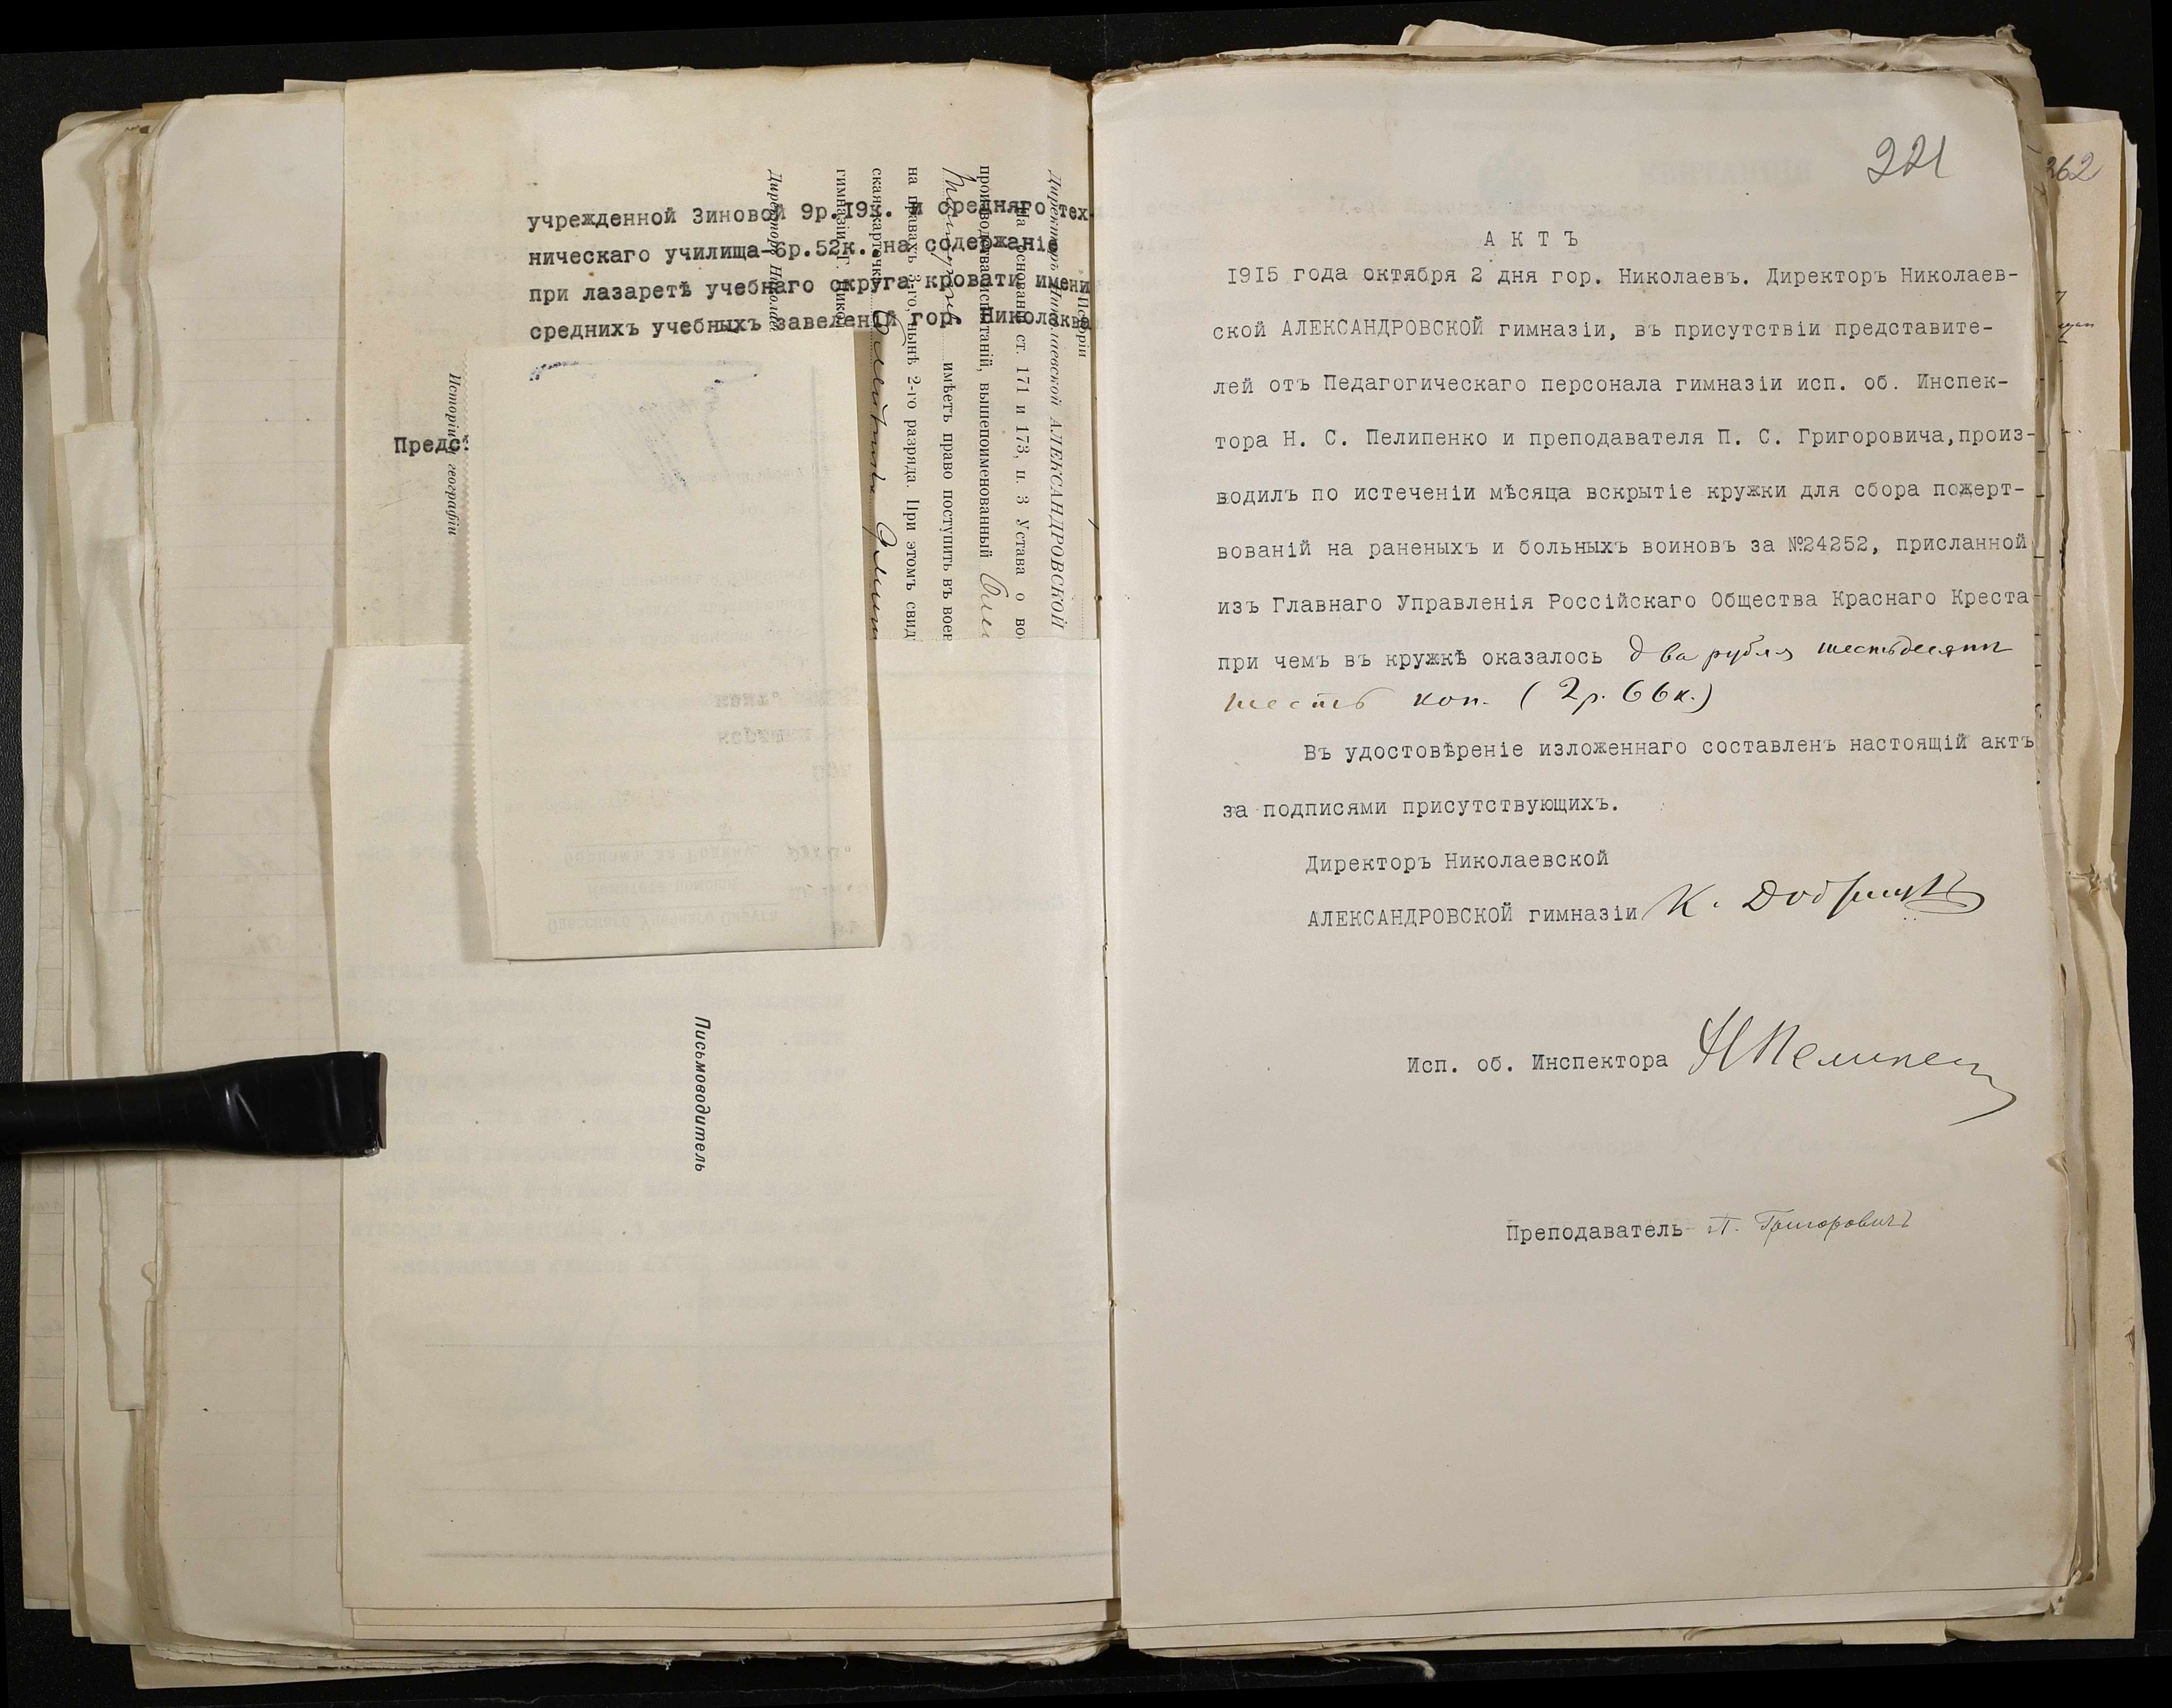 учрежденной Зиновой 9р.19к. и средняго тех-
ническаго училища-6р.52к. на содержаніе
при лазаретѣ учебнаго округа кровати имени
среднихъ учебныхъ заведеній гор. Николаева
Предс
Исторіи
Директоръ Николаевской АЛЕКСАНДРОВСКОЙ
На основаніи ст. 171 и 173, п. 3 Устава о во
производства испытаній, вышепоименованный
имѣетъ право поступить въ воен
на правахъ 3-го, нынѣ 2-го разряда. При этомъ свид
ская карточка
гимназіи г. Нико
Директоръ Николаев
Исторіи и географіи
Письмоводитель
221
262
АКТЪ
1915 года октября 2 дня гор. Николаевъ. Директоръ Николаев-
ской АЛЕКСАНДРОВСКОЙ гимназіи, въ присутствіи представите-
лей отъ Педагогическаго персонала гимназіи исп. об. Инспек-
тора Н. С. Пелипенко и преподавателя П. С. Григоровича,произ-
водилъ по истеченіи мѣсяца вскрытіе кружки для сбора пожерт-
вованій на раненыхъ и больныхъ воиновъ за №24252, присланной
изъ Главнаго Управленія Россійскаго Общества Краснаго Креста
при чемъ въ кружкѣ оказалось два рубля шестьдесятъ
шесть коп. (2р. 66к.)
Въ удостовѣреніе изложеннаго составленъ настоящій актъ
за подписями присутствующихъ.
Директоръ Николаевской
АЛЕКСАНДРОВСКОЙ гимназіи К.
Исп. об. Инспектора Н Пелипен
Преподаватель П. Григоровичъ